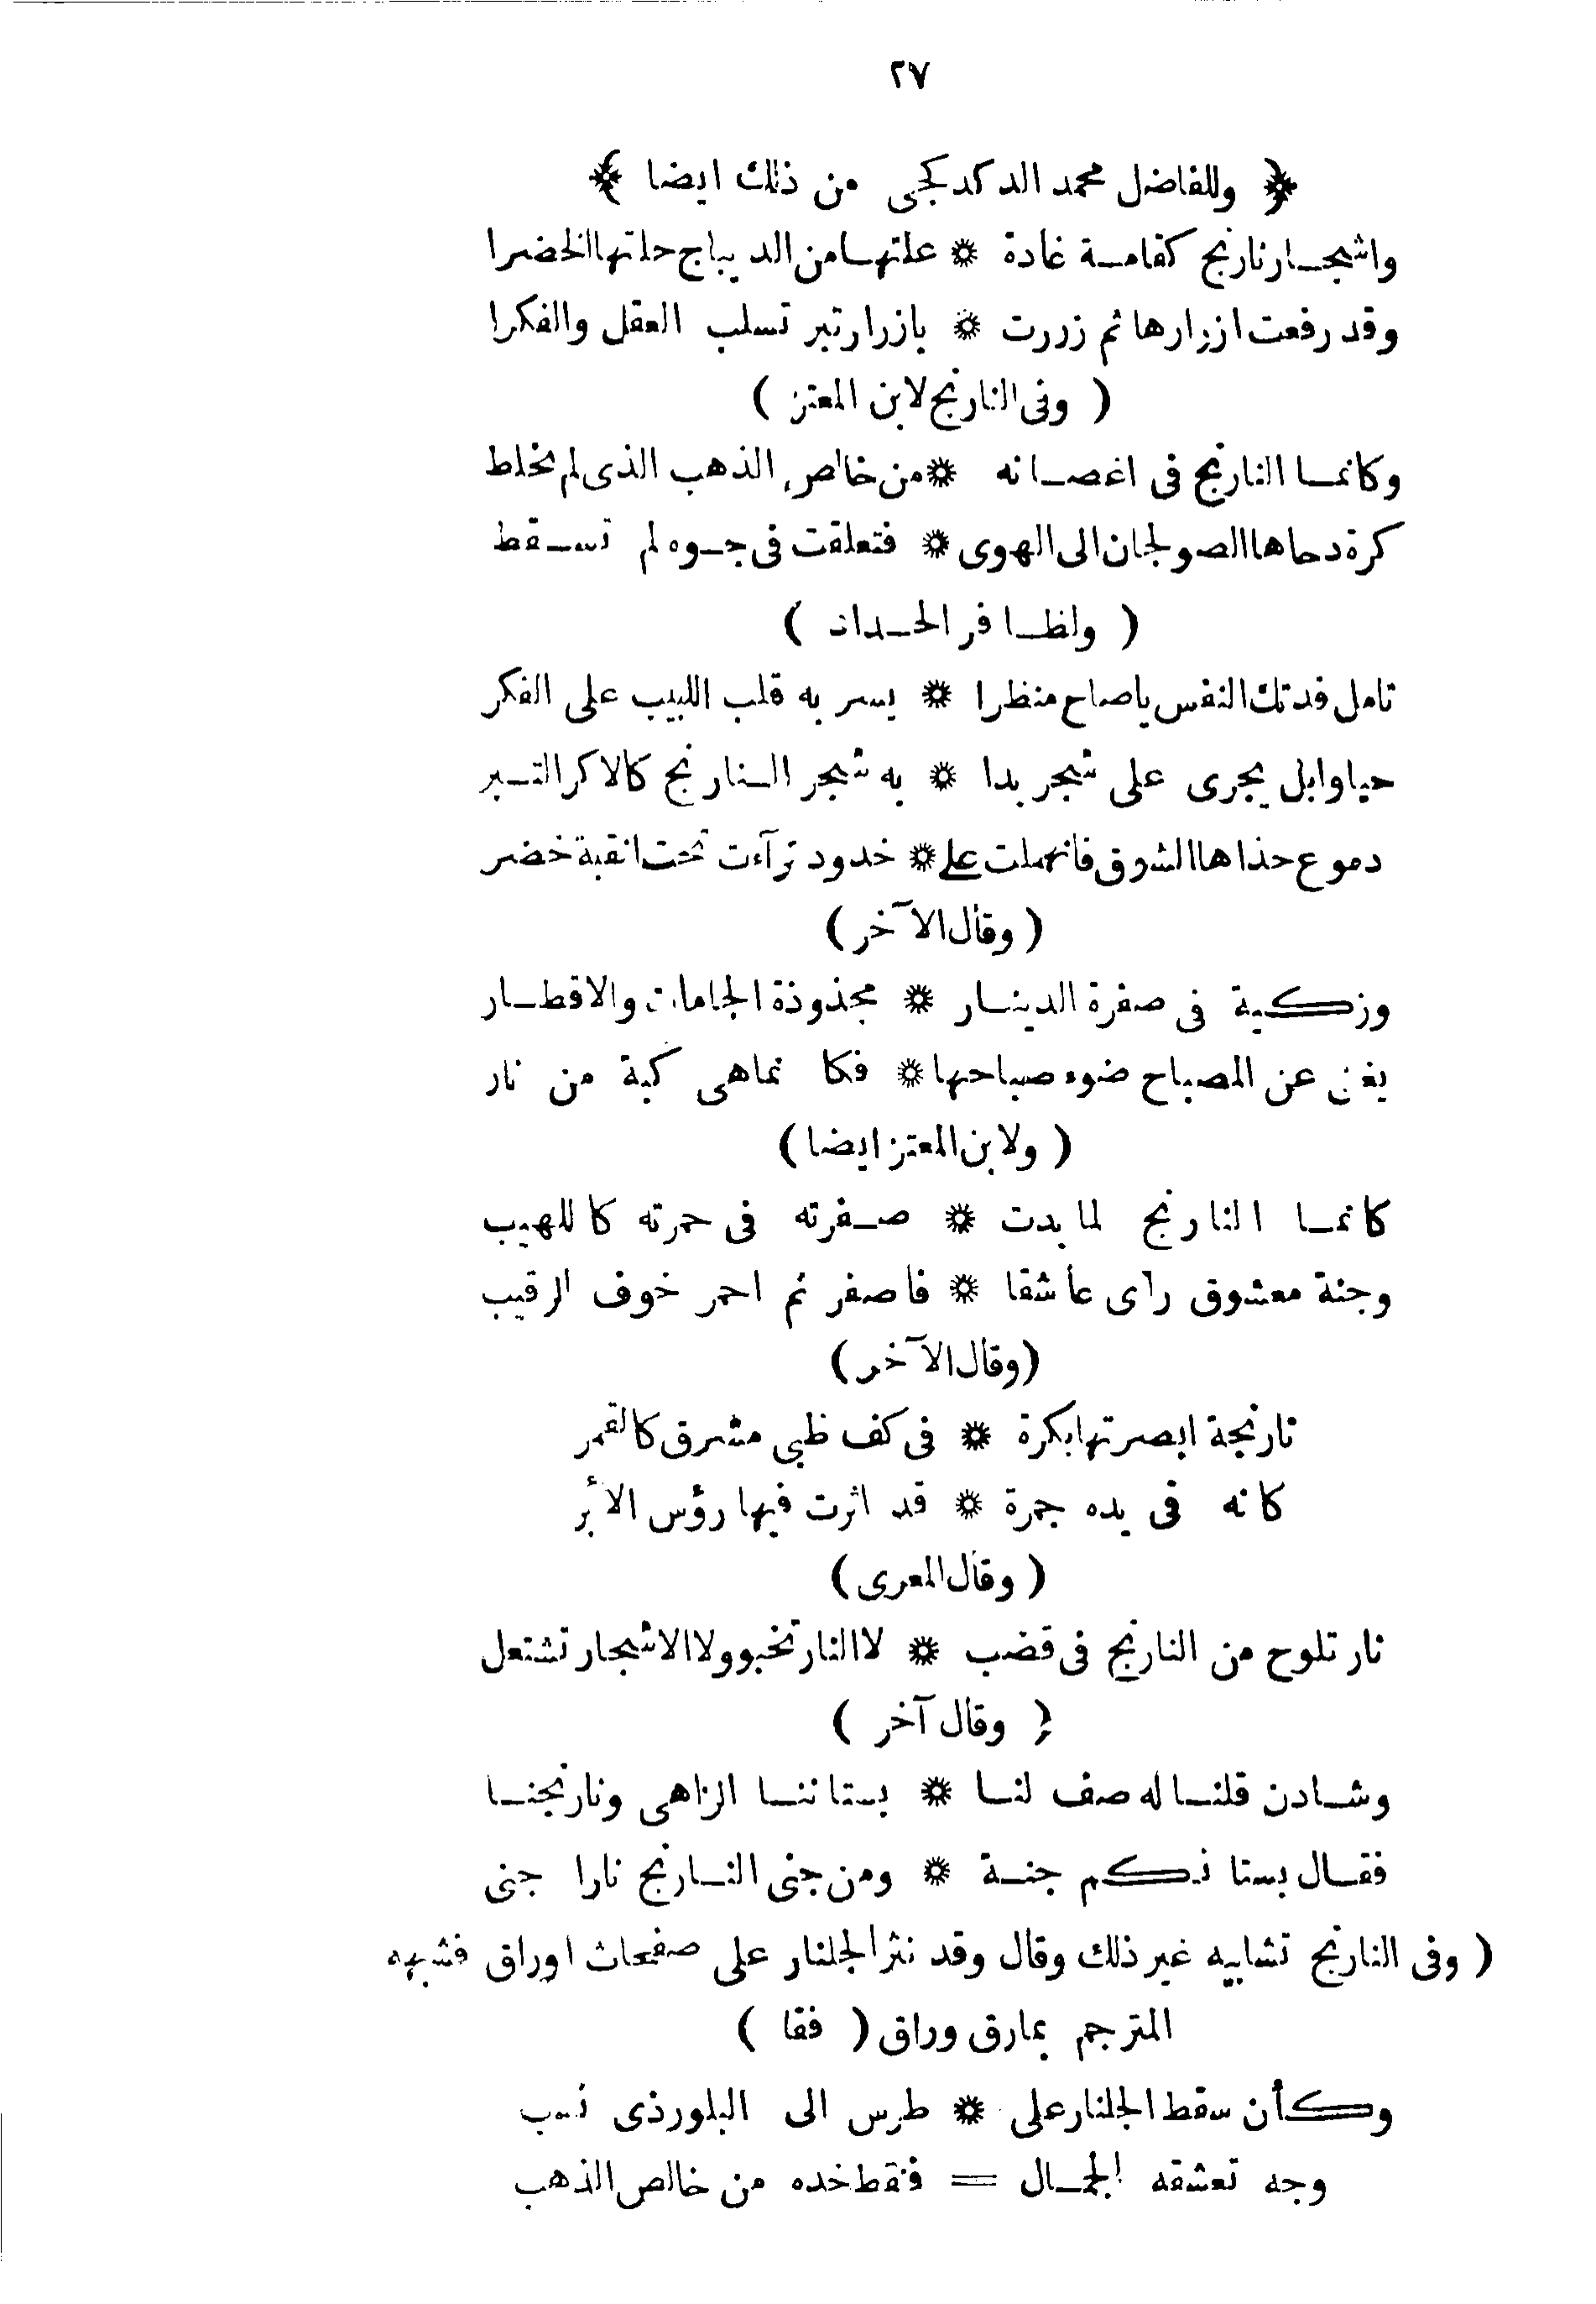 ٢٧
﴿ وللفاضل محمد الدكدكجى من ذلك ايضا ﴾
واشجار نارنج كقامة غادة * علتها من الديباج حلتها الخضرا
وقد رفعت ازرارها ثم زررت * بازرار تبر تسلب العقل والفكرا
( وفى النارنج لابن المعتز )
وكانما النارنج فى اغصانه * من خالص الذهب الذى لم يخلط
كرة دحاها الصولجان الى الهوى * فتعلقت فى جوه لم تسقط
( ولظافر الحداد )
تامل فدتك النفس ياصاح منظرا * يسر به قلب اللبيب على الفكر
حيا وابل يجرى على شجر بدا * به شجر النارنج كالاكر التبر
دموع حذاها الشوق فانهملت على * خدود ترآءت تحت انقبة خضر
( وقال الآخر )
وزكية فى صفرة الدينار * مجذوذة الجامات والاقطار
يغنى عن المصباح ضوء صباحها * فكانماهى كبة من نار
( ولابن المعتز ايضا )
كانما النارنج لما بدت * صفرته فى حمرته كاللهيب
وجنة معشوق راى عاشقا * فاصفر ثم احمر خوف الرقيب
( وقال الآخر )
نارنجة ابصرتها بكرة * فى كف ظبى مشرق كالقمر
كانه فى يده جمرة * قد اثرت فيها رؤس الأبر
( وقال المعرى )
نار تلوح من النارنج فى قضب * لا النار تخبو ولا الاشجار تشتعل
( وقال آخر )
وشادن قلنا له صف لنا * بستاننا الزاهى ونارنجنا
فقال بستانكم جنة * ومن جنى النارنج نارا جنى
( وفى النارنج تشابيه غير ذلك وقال وقد نثر الجلنار على صفحات اوراق فشبهه
المترجم بمارق وراق ( فقا )
وكأن سقط الجلنار على * طرس الى البلور ذى نسب
وجه تعشقه الجمال = فنقط خده من خالص الذهب